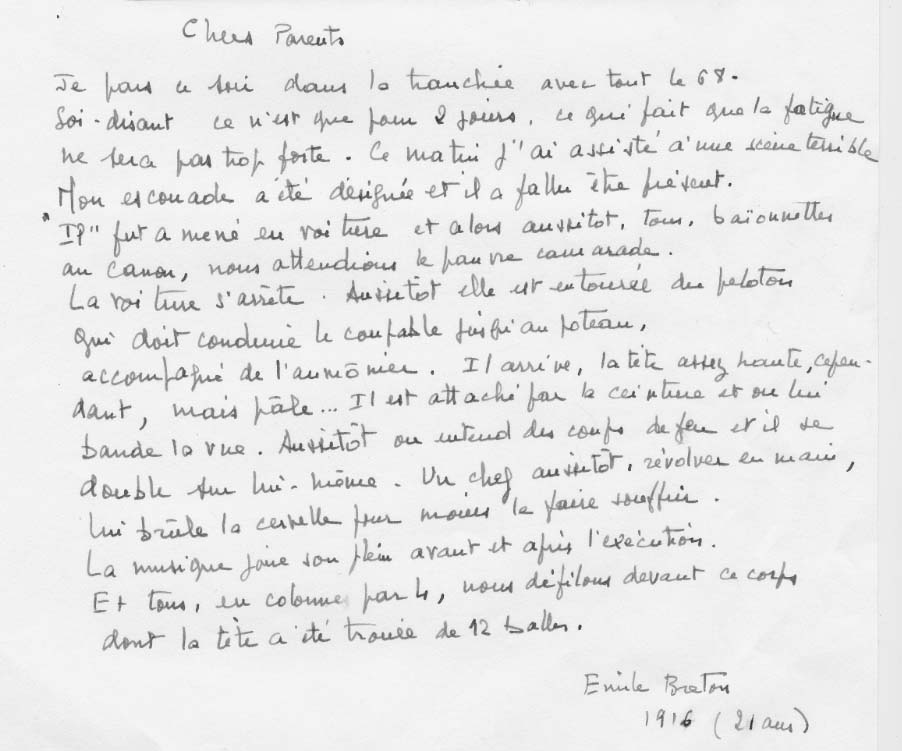 Chers Parents
Je pars ce soir dans la tranchée avec tout le 68.
Soi-disant ce n'est que pour 2 jours, ce qui fait que la fatigue
ne sera pas trop forte. Ce matin j"ai assisté à une scène terrible
Mon escouade a été désignée et il a fallu être présent.
"Il" fut amené en voiture et alors aussitot, tous, baïonnettes
au canon, nous attendions le pauvre camarade.
La voiture s'arrête. Aussitôt elle est entourée du peloton
qui doit conduire le coupable jusqu'au poteau,
accompagné de l'aumônier. Il arrive, la tête assez haute, cepen-
dant, mais pâle... Il est attaché par la ceinture et on lui
bande la vue. Aussitôt on entend des coups de feu et il se
double sur lui-même. Un chef aussitôt, révolver en main,
lui brûle la cervelle pour moins le faire souffrir.
La musique joue son plein avant et après l'exécution.
Et tous, en colonne par 4, nous défilons devant ce corps
dont la tête a été trouée de 12 balles.
Emile Breton
1916 (21 ans)